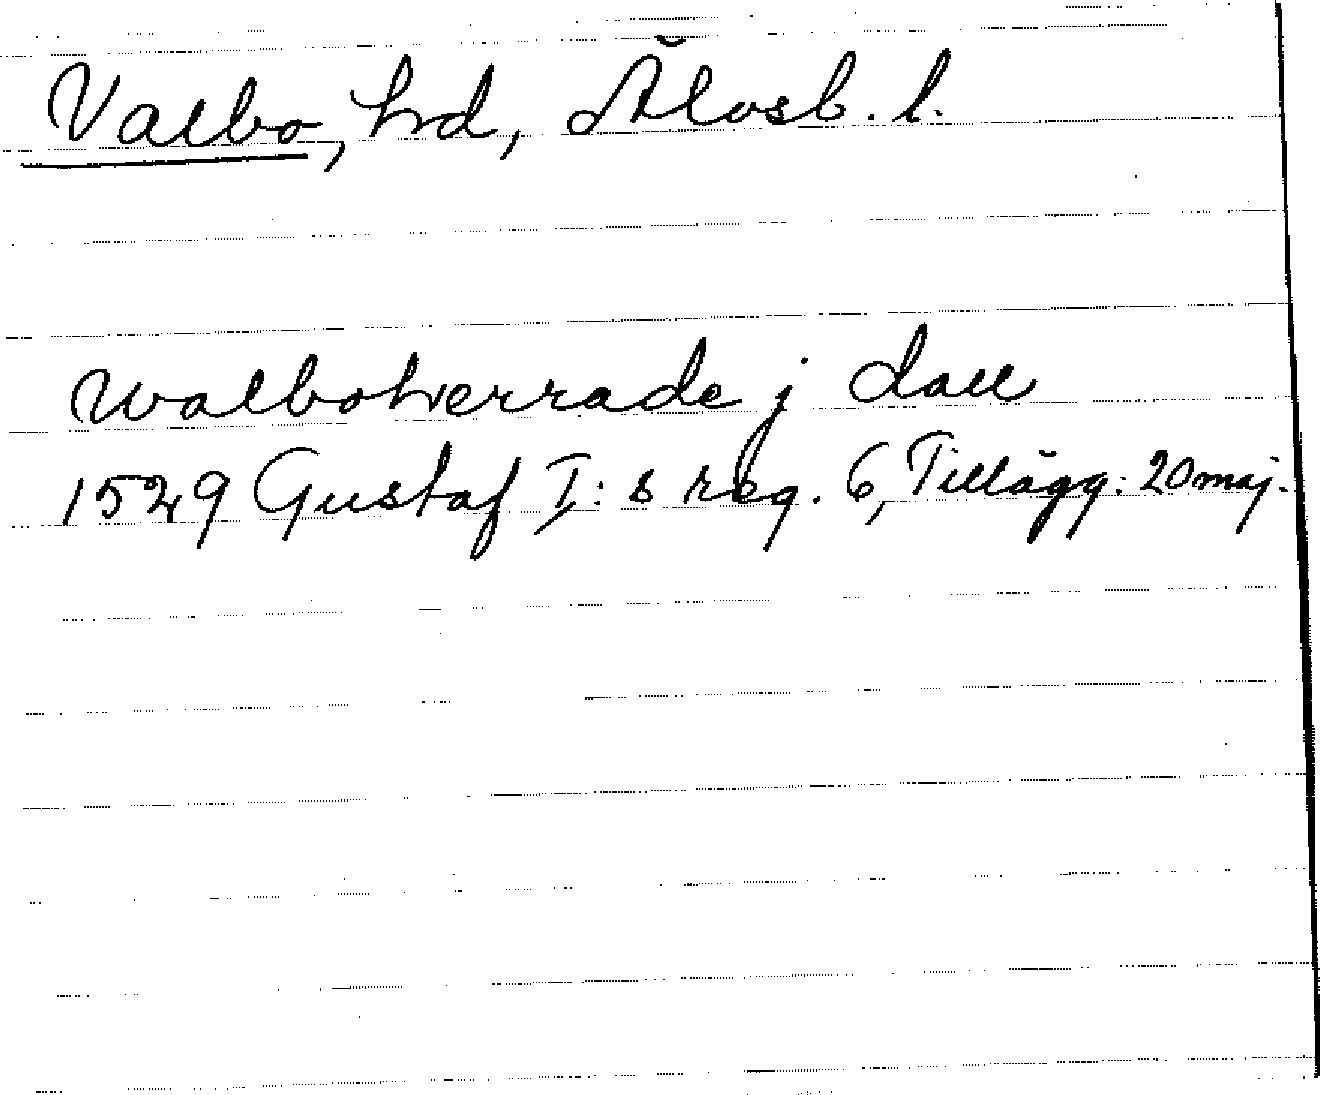 Valbo, hd, Älvsb. l.
Walboherrade j dall
1529 Gustaf I:s reg. 6, Tillägg: 20 maj.